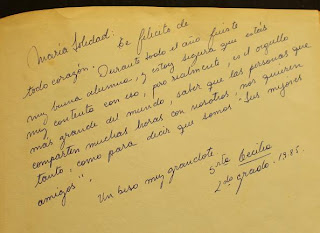 María Soledad: Te felicito de
todo corazón. Durante todo el año fuiste
muy buena alumna, y estoy segura que estás
muy contenta con eso, pero realmente, es el orgullo
más grande del mundo, saber que las personas que
comparten muchas horas con nosotros, nos quieren
tanto, como para decir que somos "Sus mejores
amigos".
Un beso muy grandote
Srta Cecilia
2do grado. 1985.